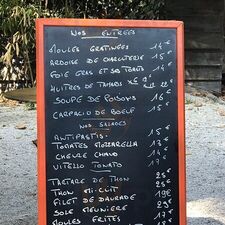 NOS ENTRÉES
MOULES GRATINÉES 14€
ARDOISE DE CHARCUTERIE 15€
FOIE GRAS ET SES TOASTS 14€
HUITRES DE x6
SOUPE DE POISSONS 16€
CARPACIO DE BOEUF 15€
NOS SALADES
ANTIPASTIS 15€
TOMATES MOZZARELLA 13€
CHEVRE CHAUD 14€
VITELLO TONATO
TARTARE DE THON 25€
THON MI-CUIT 25€
FILET DE DAURADE 19€
SOLE MEUNIERE
MOULES FRITES